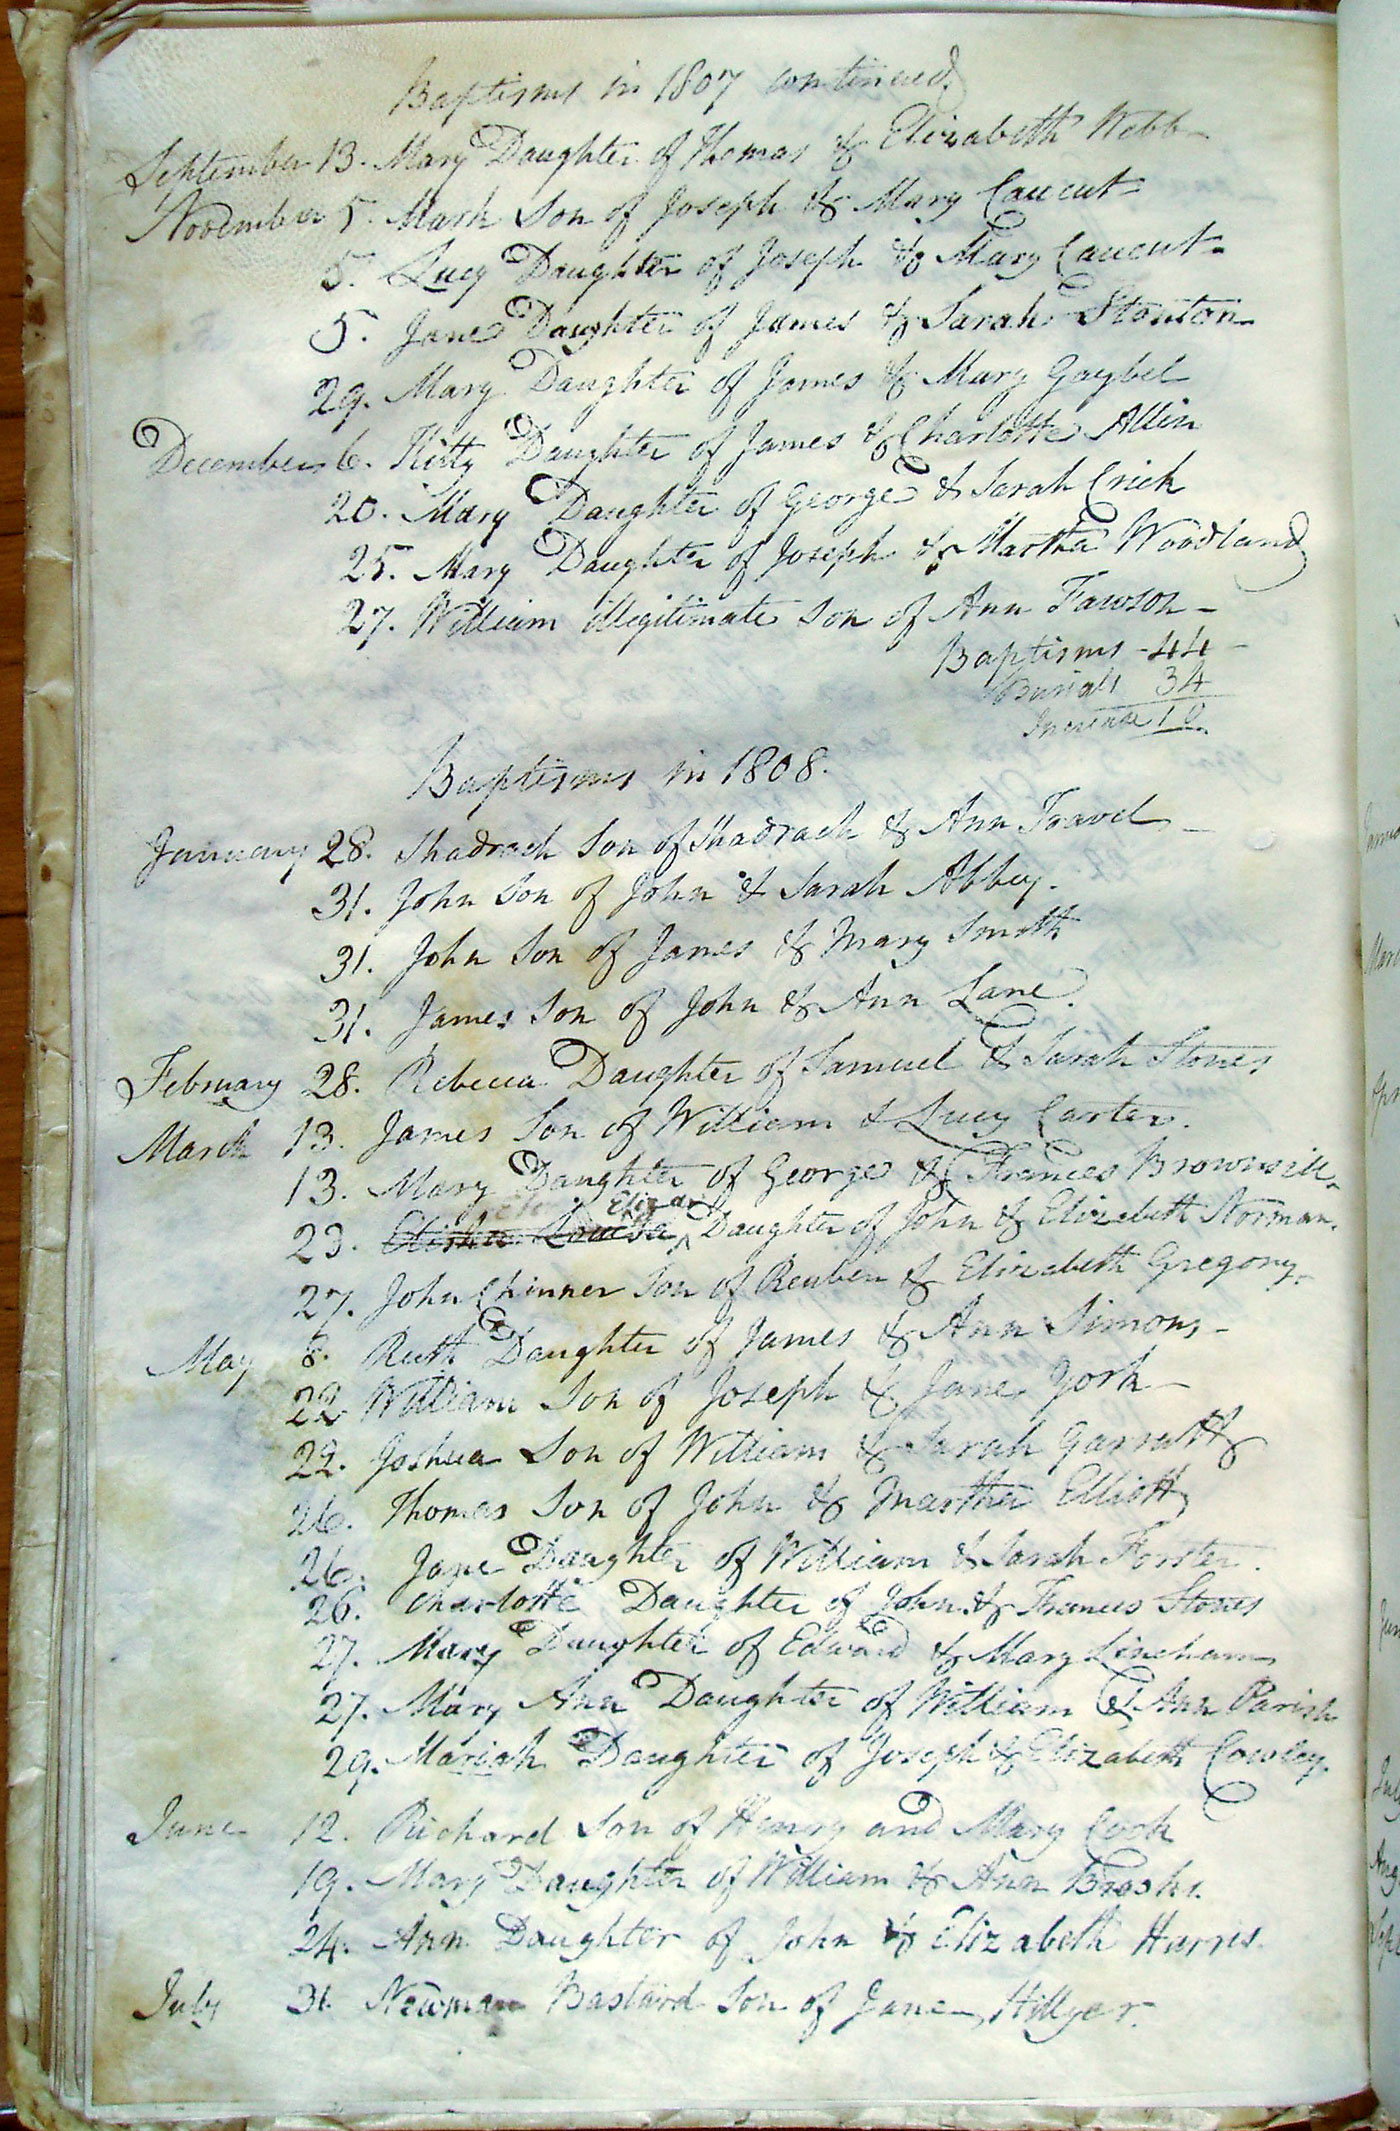 Baptisms in 1807 continued.
September 13. Mary Daughter of Thomas & Elizabeth Webb
November 5. Mark Son of Joseph & Mary Caucut
5. Lucy Daughter of Joseph & Mary Caucut
5. Jane Daughter of James & Sarah Stonton
29. Mary Daughter of James & Mary Gaybel
December 6. Kitty Daughter of James & Charlotte Allin
20. Mary Daughter of George & Sarah Crick
25. Mary Daughter of Joseph & Martha Woodland
27. William illegitimate Son of Ann Fawson
Baptisms - 44
Burials 34
Increase 10
Baptisms in 1808.
January 28. Shadrach Son of Shadrach & Ann Travel
31. John Son of John & Sarah Abbey.
31. John Son of James & Mary Smith
31. James Son of John & Ann Lane.
February 28. Rebecca Daughter of Samuel & Sarah Stones
March 13. James Son of William & Lucy Carter.
13. Mary Daughter of George & Frances Brownsill
Eliza
23. Elisha Louisa ^ Daughter of John & Elizabeth Norman.
27. John Chinner Son of Reuben & Elizabeth Gregory.
May 8. Ruth Daughter of James & Ann Simons
22 William Son of Joseph & Jane York
22. Joshua Son of William & Sarah Garratt
26. Thomas Son of John & Martha Elliott
26. Jane Daughter of William & Sarah Forster.
26. Charlotte Daughter of John & Frances Stones
27. Mary Daughter of Edward & Mary Lineham
27. Mary Ann Daughter of William & Ann Parish
29. Mariah Daughter of Joseph & Elizabeth Cowley.
June 12. Richard Son of Henry and Mary Cook
19. Mary Daughter of William & Ann Brooks.
24. Ann Daughter of John & Elizabeth Harris.
July 31. Newman Bastard Son of Jane Hillyer.